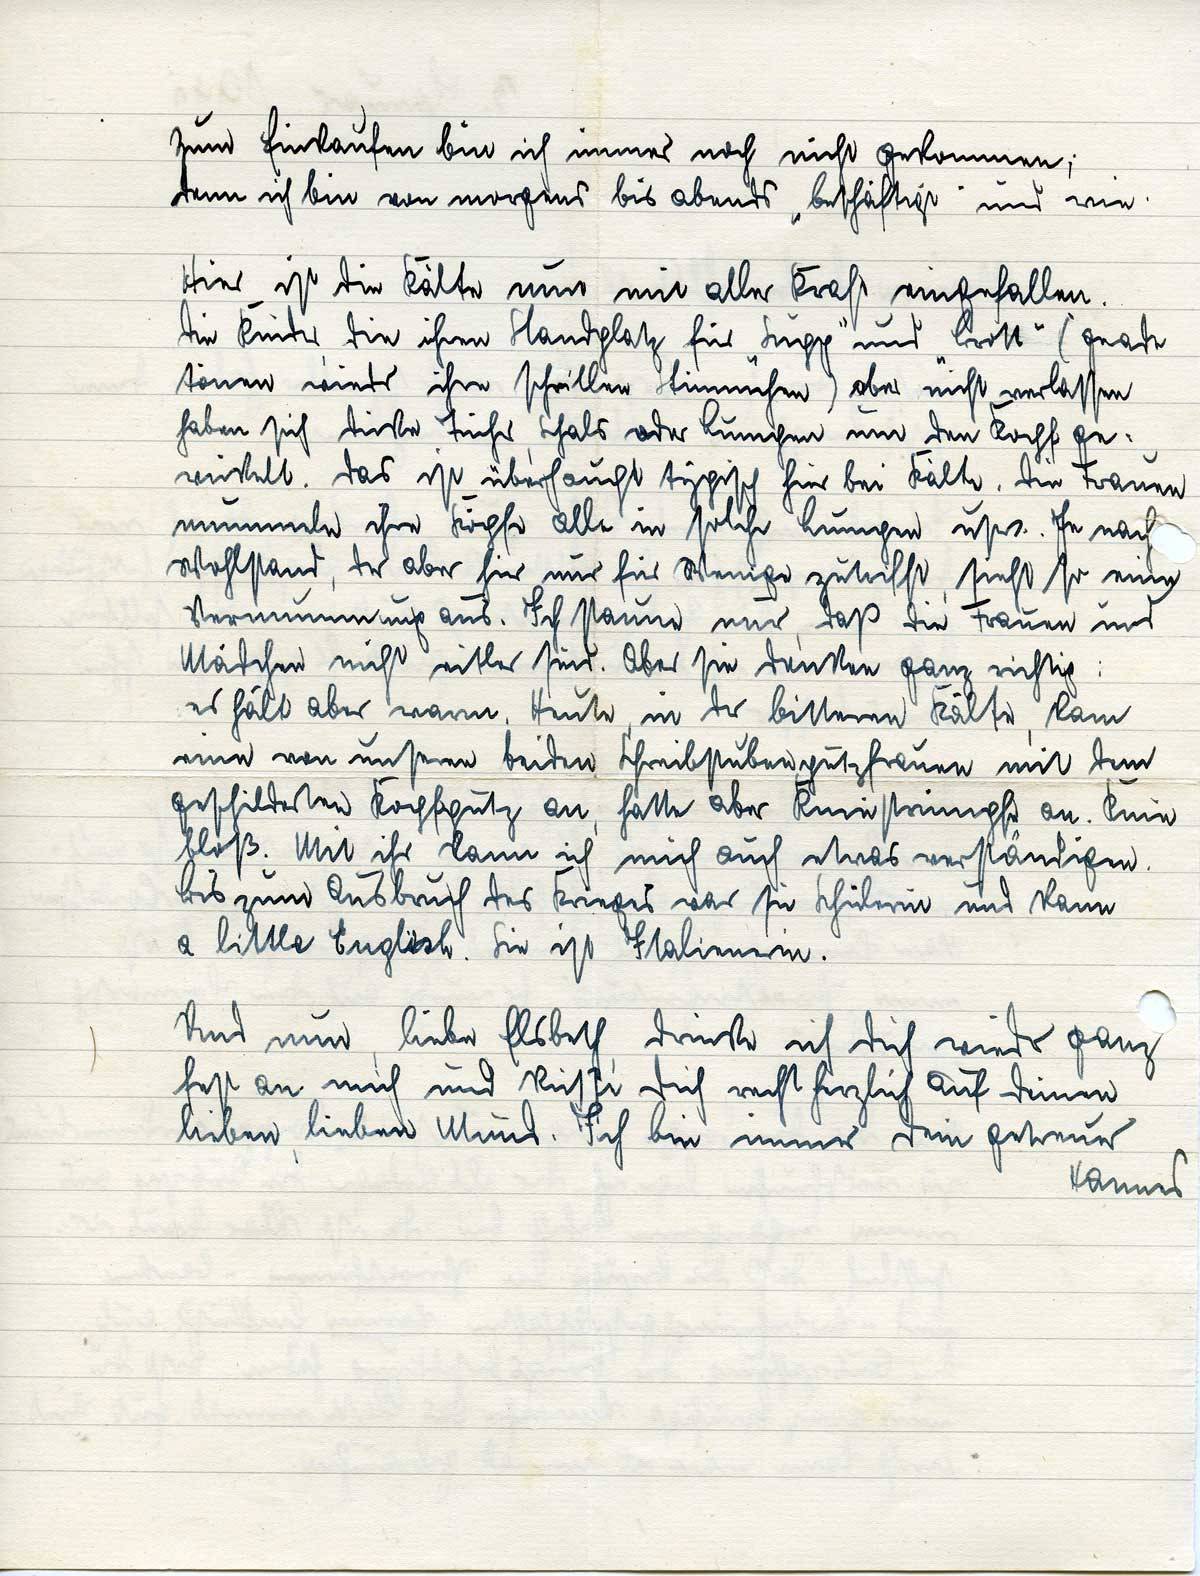 Zum Einkaufen bin ich immer noch nicht gekommen;
denn ich bin von morgens bis abends „beschäftigt“ und wie.
Hier ist die Kälte nun mit aller Kraft eingefallen.
Die Kinder, die ihren Standplatz für „Supp“ und „Brott“ (gerade
tönen wieder ihre schrillen Stimmchen) aber nicht verlassen
haben sich dicke Tücher, Schals oder Lumpen um den Kopf ge-
wickelt. Das ist überhaupt typisch hier bei Kälte. Die Frauen
mummeln ihre Köpfe alle in solche Lumpen usw. Je nach
Wohlstand, der aber hier nur für Wenige zutrifft, sieht so eine
Vermummung aus. Ich staune nur, daß die Frauen und
Mädchen nicht eitler sind. Aber sie denken ganz richtig:
es hält aber warm. Heute, in der bitteren Kälte, kam
eine von unseren beiden Schreibstubenputzfrauen mit dem
geschilderten Kopfputz an, hatte aber Kniestrümpfe an. Knie
bloß. Mit ihr kann ich mich auch etwas verständigen.
Bis zum Ausbruch des Krieges war sie Schülerin und kann
a little English. Sie ist Italienerin.
Und nun, liebe Elsbeth, drücke ich Dich wieder ganz
fest an mich und küsse Dich recht herzlich auf Deinen
lieben, lieben Mund. Ich bin immer Dein getreuer
Hannes